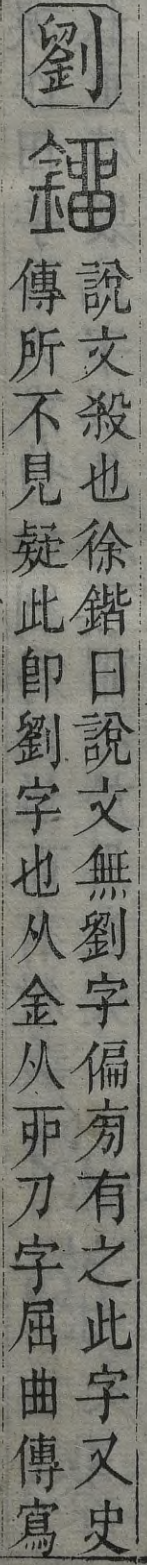 劉
鐂
說文殺也徐鍇曰說文無劉字偏旁有之此字又史
傳所不見疑此卽劉字也从金从丣刀字屈曲傳寫